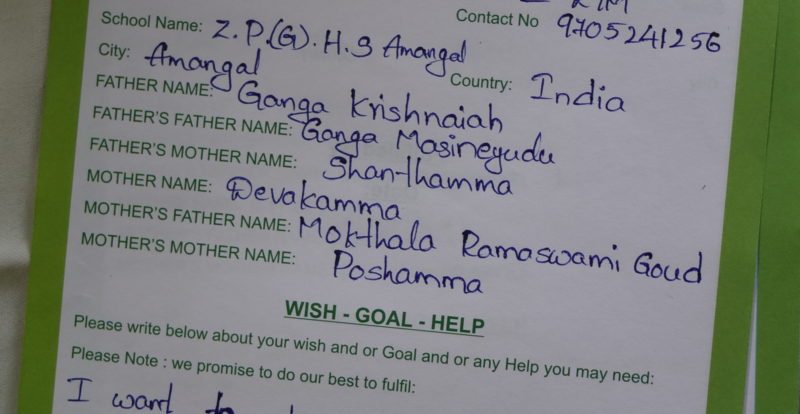 School Name: Z.P.(G).H.S Amangal Contact No 9705241256
City: Amangal Country: India
FATHER NAME: Ganga Krishnaiah
FATHER'S FATHER NAME: Ganga Masineyudu
FATHER'S MOTHER NAME: Shanthamma
MOTHER NAME: Devakamma
MOTHER'S FATHER NAME: Mokthala Ramaswami Goud
MOTHER'S MOTHER NAME: Poshamma
WISH - GOAL - HELP
Please write below about your wish and or Goal and or any Help you may need:
Please Note : we promise to do our best to fulfil:
I want to